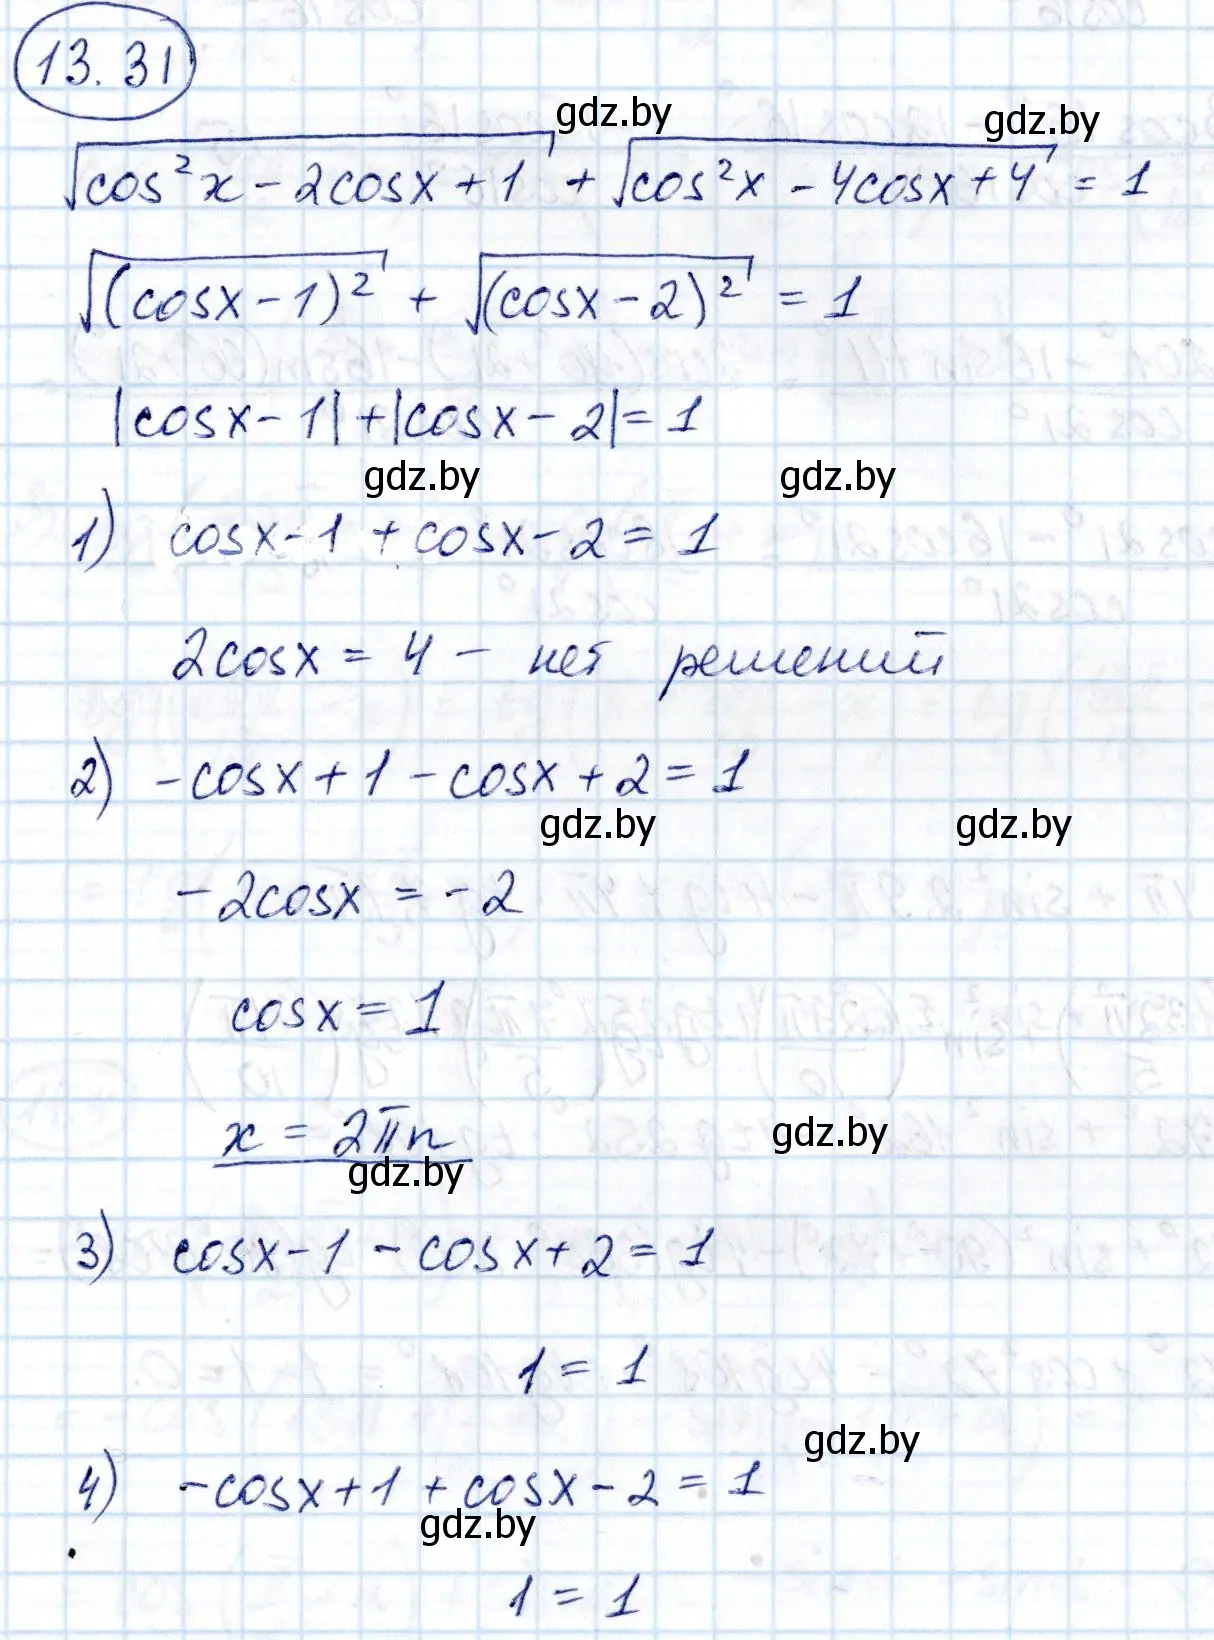 13.31
gdz.by gdz.by
√(cos²x − 2cosx + 1) + √(cos²x − 4cosx + 4) = 1
√((cosx − 1)²) + √((cosx − 2)²) = 1
|cosx − 1| + |cosx − 2| = 1
gdz.by gdz.by
1) cosx − 1 + cosx − 2 = 1
2cosx = 4 − нет решений
2) −cosx + 1 − cosx + 2 = 1
gdz.by gdz.by
−2cosx = −2
cosx = 1
x = 2πn
gdz.by
gdz.by
3) cosx − 1 − cosx + 2 = 1
1 = 1
gdz.by
4) −cosx + 1 + cosx − 2 = 1
gdz.by
1 = 1